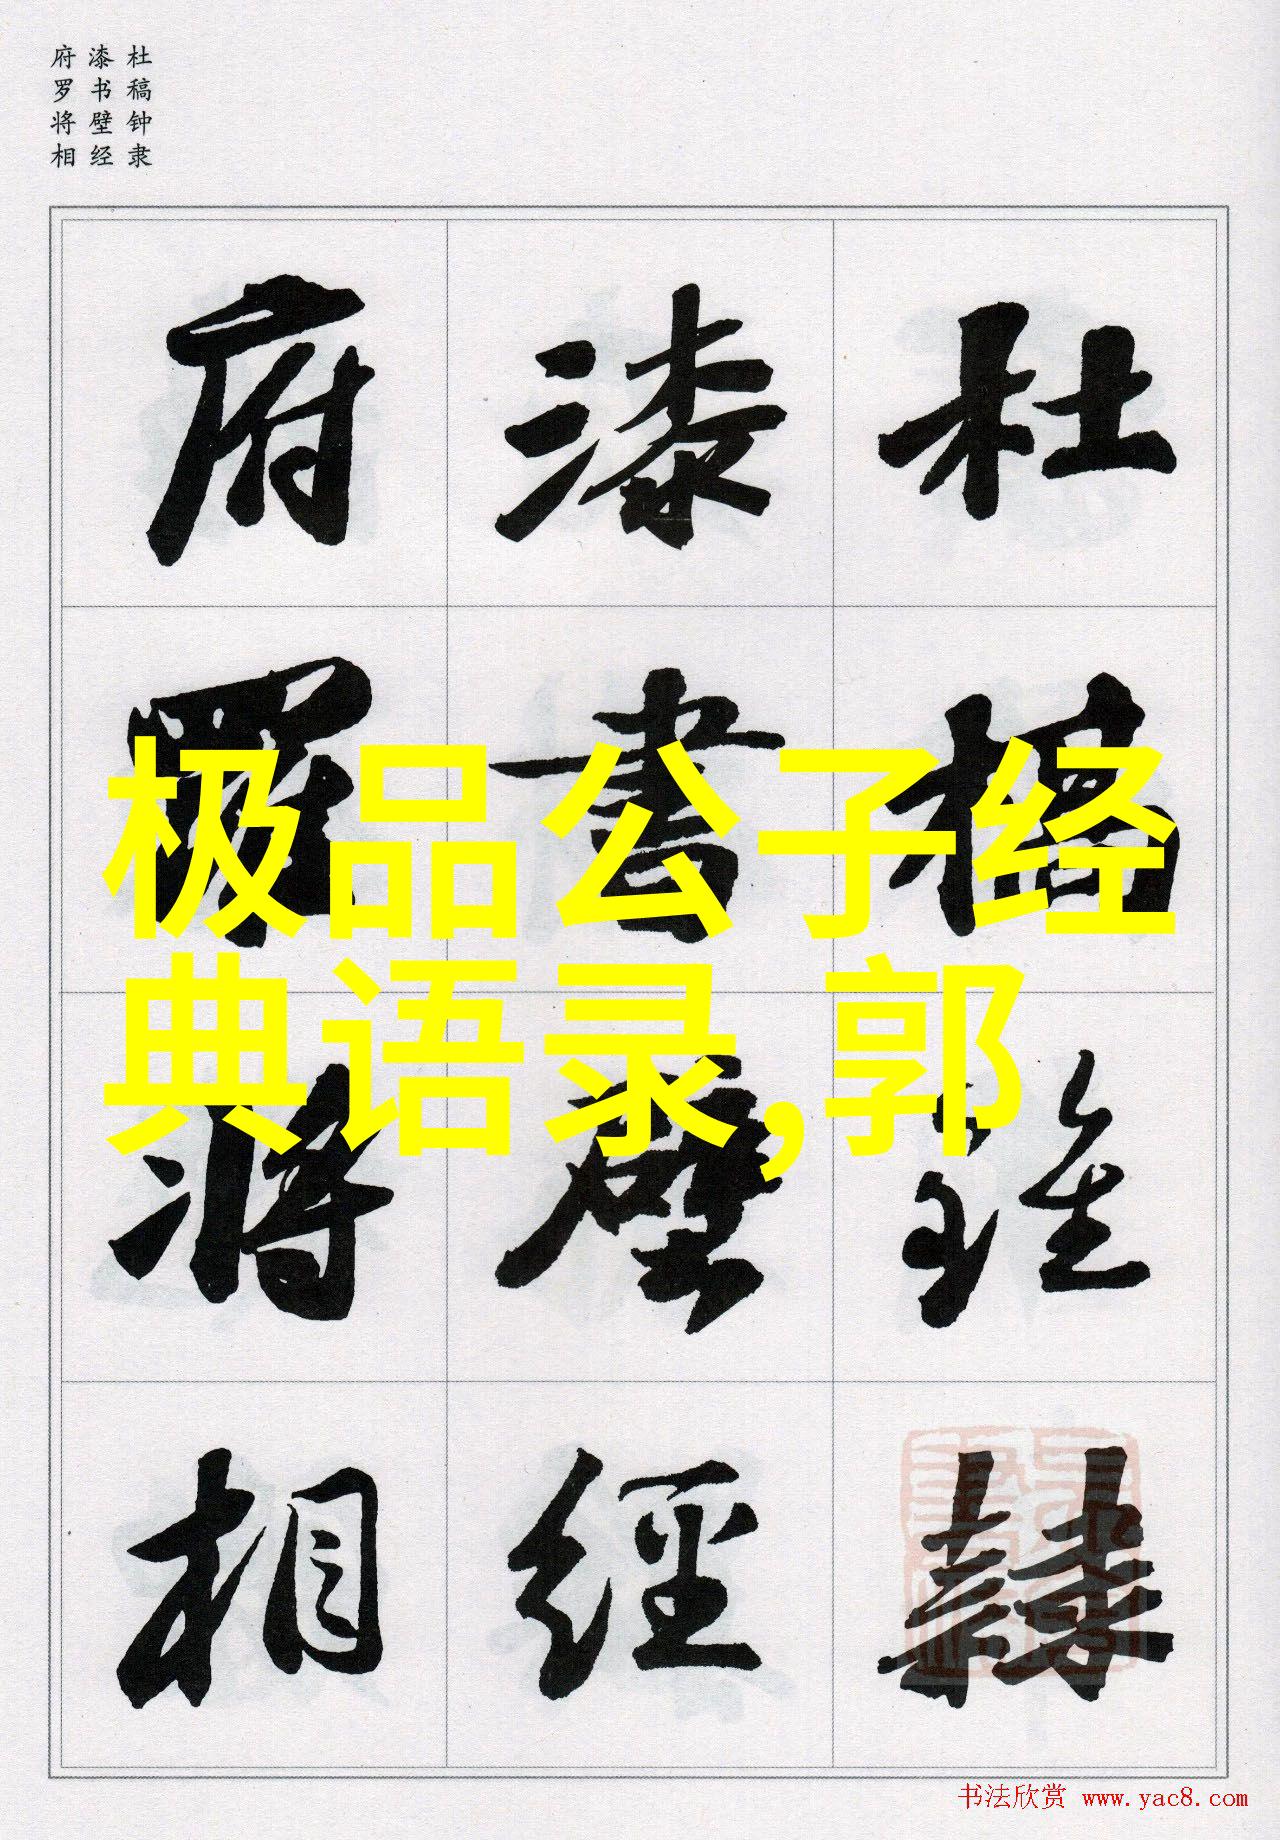 杜稿钟隶
漆书壁经
府罗将相
杜稾鍾隸
漆書壁經
府羅將相
极品公子经
典语录,郭
书法欣赏 www.yac8.com